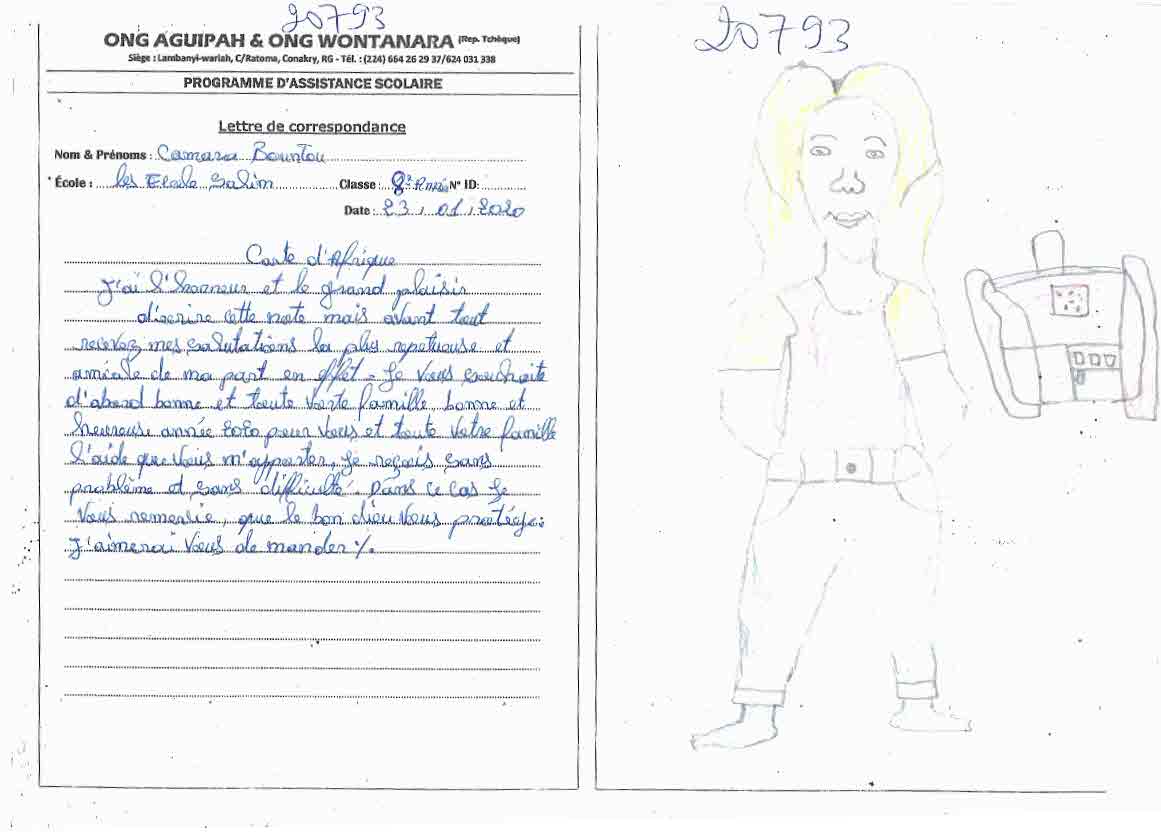 20793
ONG AGUIPAH & ONG WONTANARA (Rep. Tchèque)
Siège : Lambanyi-wariah, C/Ratoma, Conakry, RG - Tél. : (224) 664 26 29 37/624 031 338
PROGRAMME D'ASSISTANCE SCOLAIRE
Lettre de correspondance
Nom & Prénoms : Camara Bountou
École : les Salim Classe : 8è N° ID:
Date : 23, 01, 2020
Carte d'Afrique
J'ai l'honneur et le grand plaisir
d'écrire cette note mais avant tout
recevez mes salutations les plus repetueuse et
amicale de ma part en effêt - Je vous souhaite
d'abord bonne et toute votre famille bonne et
heureuse année 2020 pour vous et toute votre famille
l'aide que vous m'apporter, je reçois sans
problème et sans difficulté. Dans ce cas je
vous remercie, que le bon dieu vous protège.
J'aimerai vous de mander %.
20793